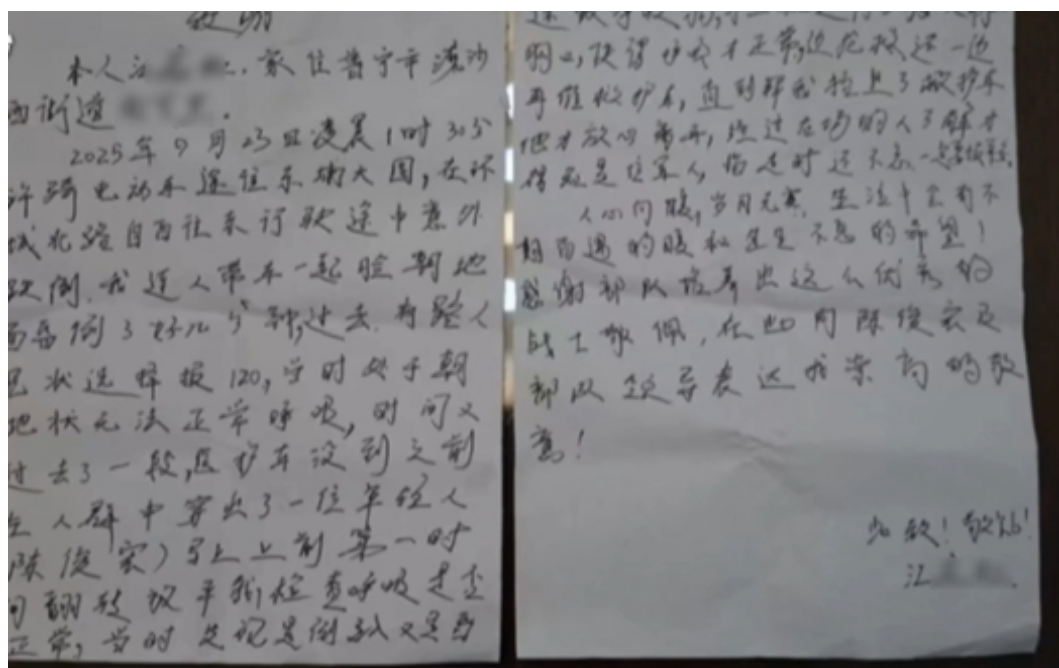 本人江
家住普宁市流沙
西街道
2025年9月23日凌晨1时30分
许骑电动车途往东埔大围,在环
城北路自西往东行驶途中意外
跌倒,我连人带车一起脸朝地
面昏倒了好几分钟,过去有路人
见状选择报120,当时处于朝
地状无法正常呼吸,时间又
过去了一段,医护车没到之前
在人群中穿出了一位年轻人
陈俊宏)马上上前第一时
间翻转放平我检查呼吸是否
正常,当时
使得呼吸才正常,边抢救还一边
再催救护车,直到帮我抬上了救护车
他才放心离开,经过在场的人了解才
得知是位军人,
人心向暖,岁月无寒,生活中全有不
期而遇的暖和生生不息的希望!
感谢部队培养出这么优秀的
战士敬佩,在此向陈俊宏及
部队领导表达我崇高的敬
意!
此致!敬礼!
江